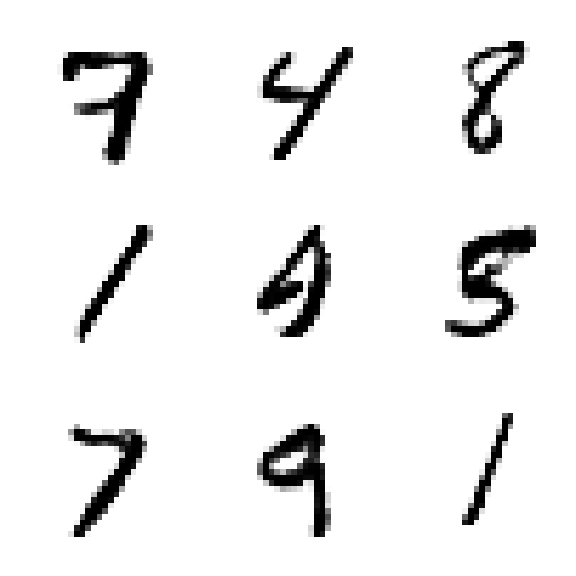 7 4 8
1 9 5
7 9 1